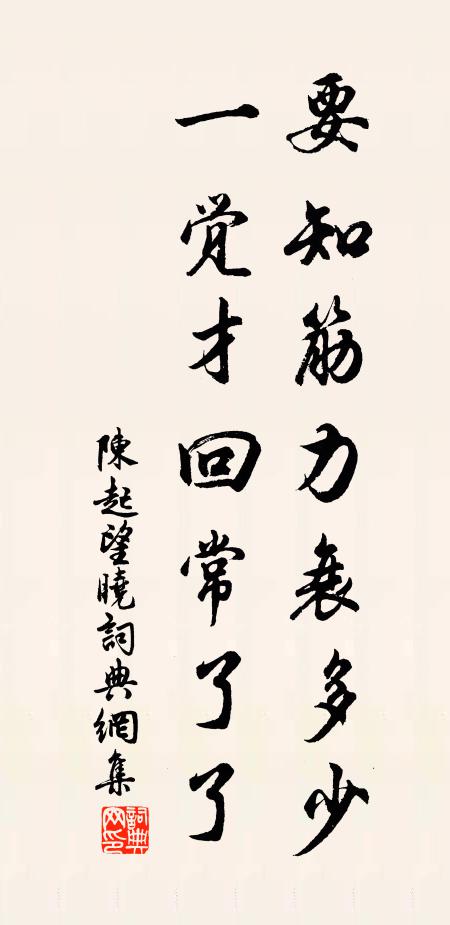 要知筋力衰多少
一觉才回常了了
陳起望曉詞典網集
詞典网印